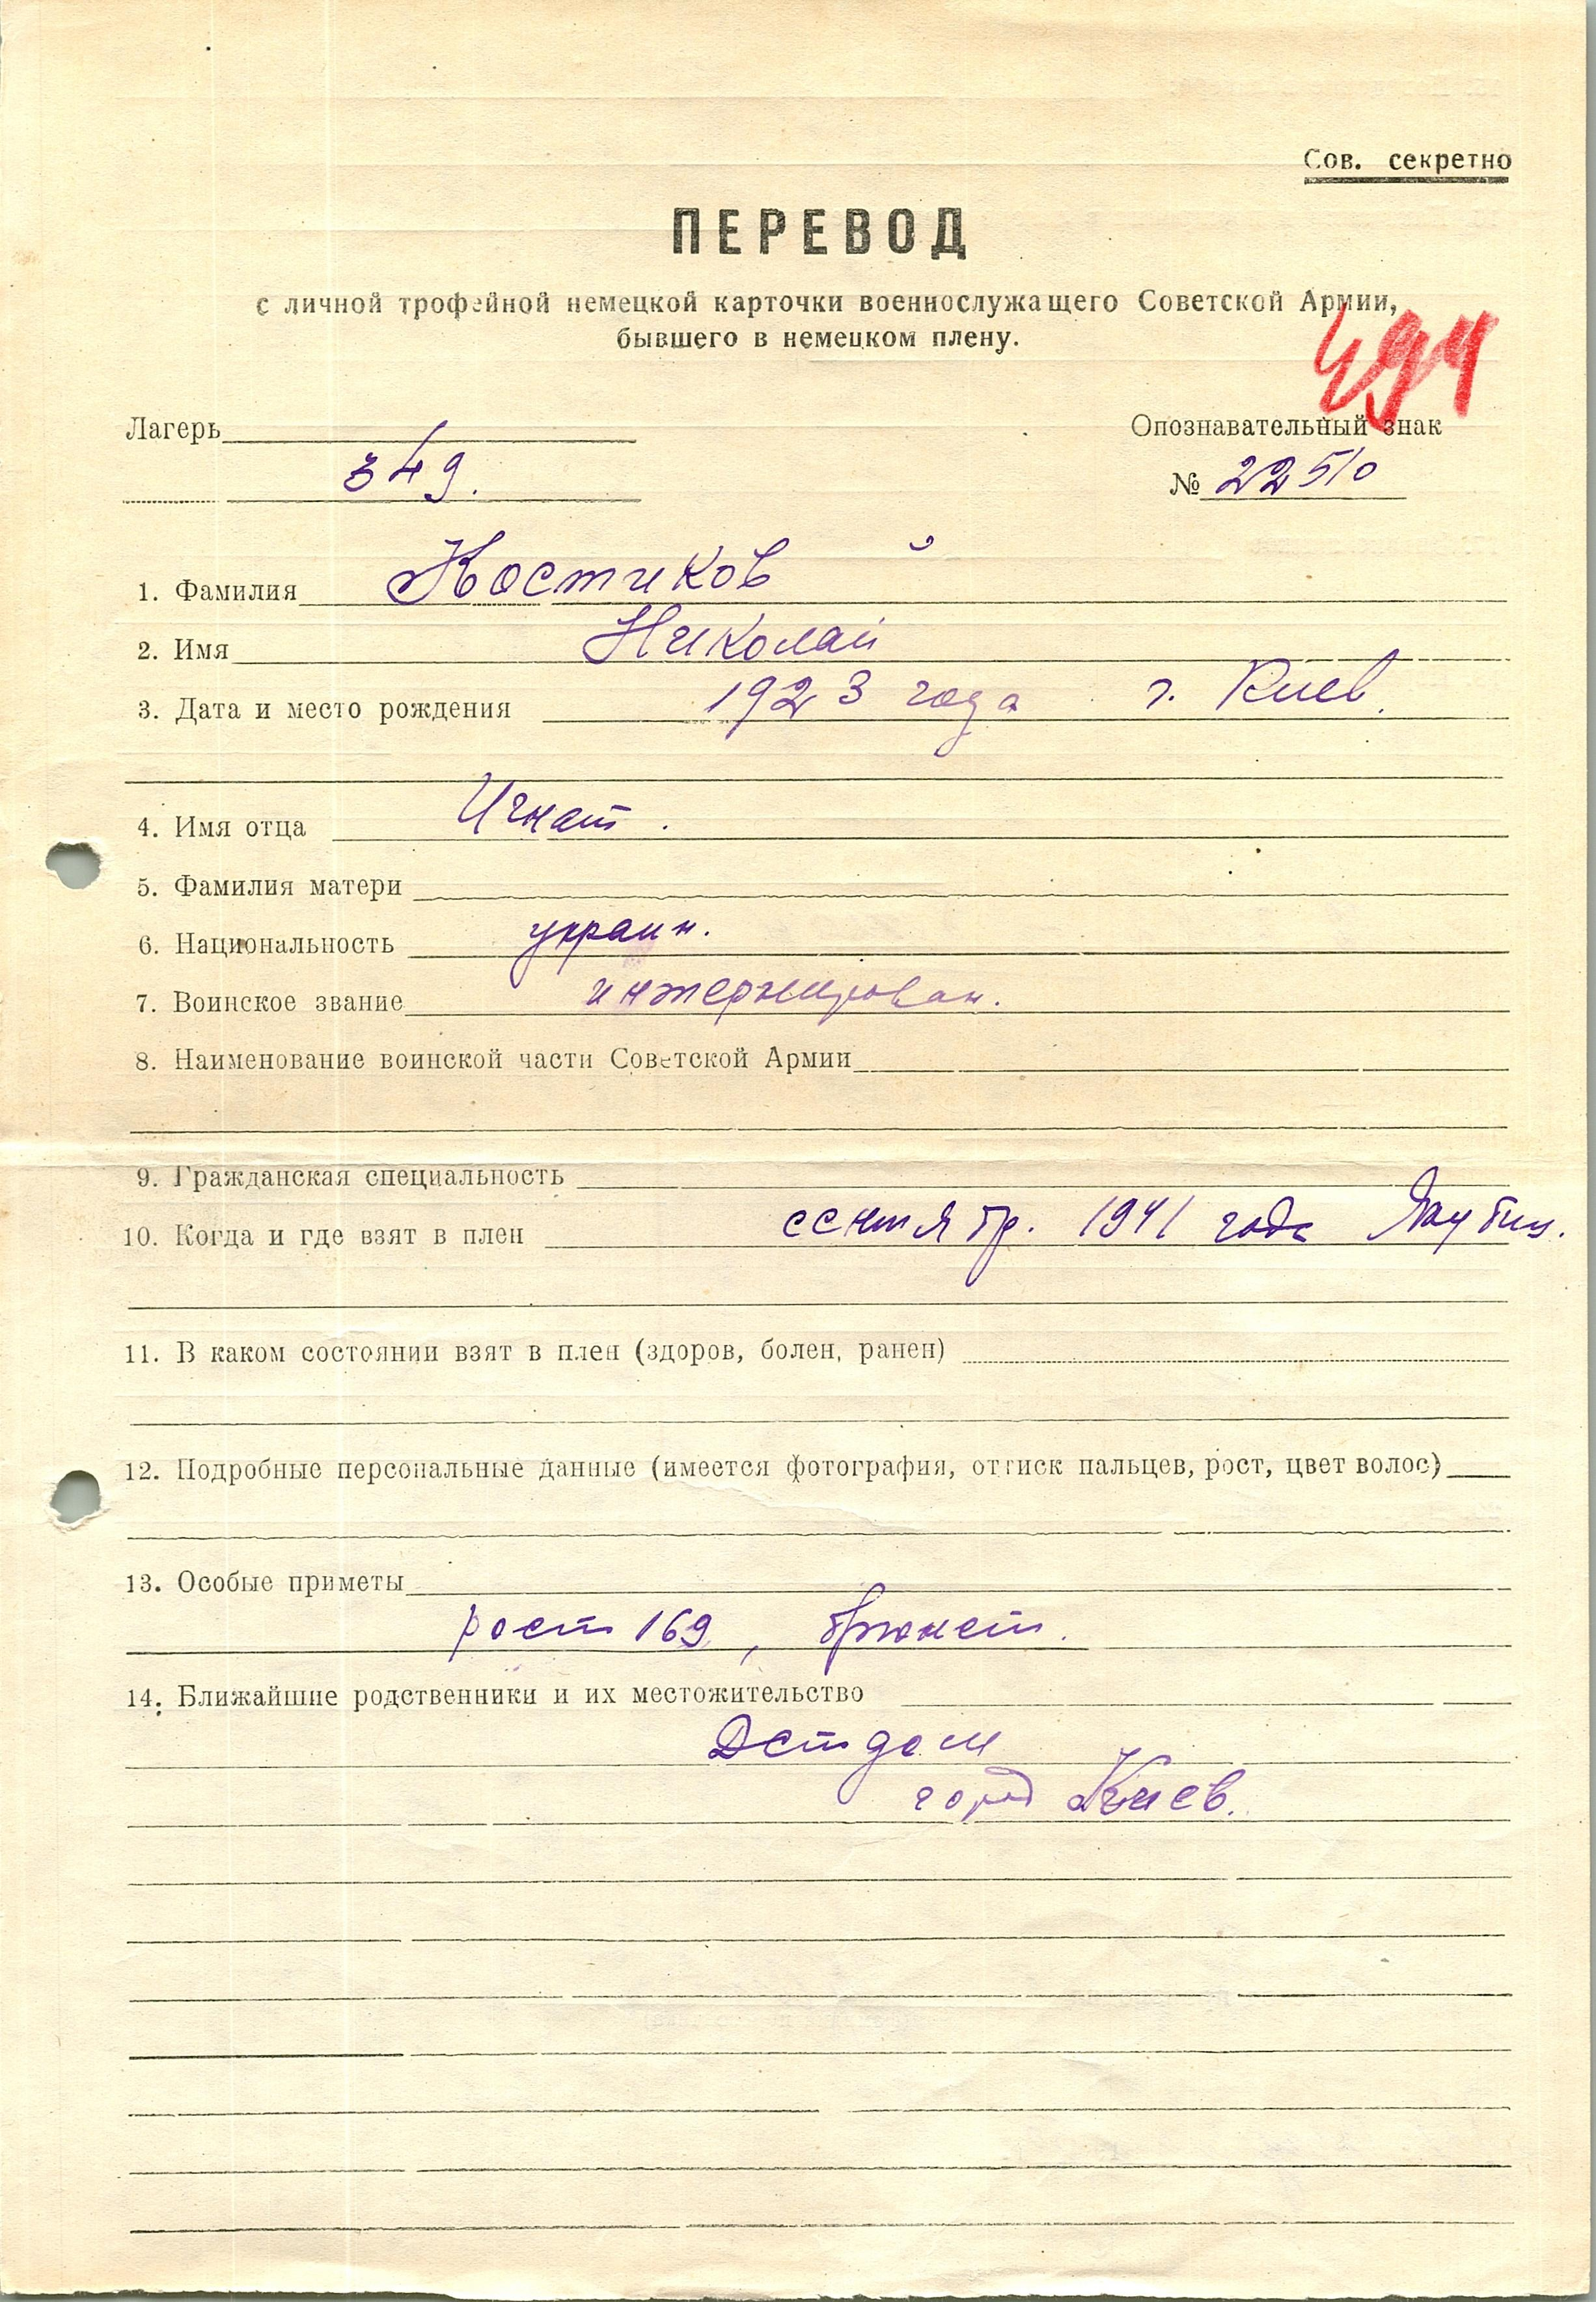 Сов. секретно
ПЕРЕВОД
с личной трофейной немецкой карточки военнослужащего Советской Армии,
бывшего в немецком плену.
Лагерь
Опознавательный знак
349.
№ 22510
1. Фамилия Костиков
2. Имя Николай
3. Дата и место рождения 1923 года г. Киев.
4. Имя отца Игнат.
5. Фамилия матери
6. Национальность украин.
7. Воинское звание интернирован.
8. Наименование воинской части Советской Армии
9. Гражданская специальность
10. Когда и где взят в плен сентябр. 1941 года
11. В каком состоянии взят в плен (здоров, болен, ранен)
12. Подробные персональные данные (имеется фотография, оттиск пальцев, рост, цвет волос)
13. Особые приметы
рост 169, брюнет.
14. Ближайшие родственники и их местожительство
Детдом
город Киев.